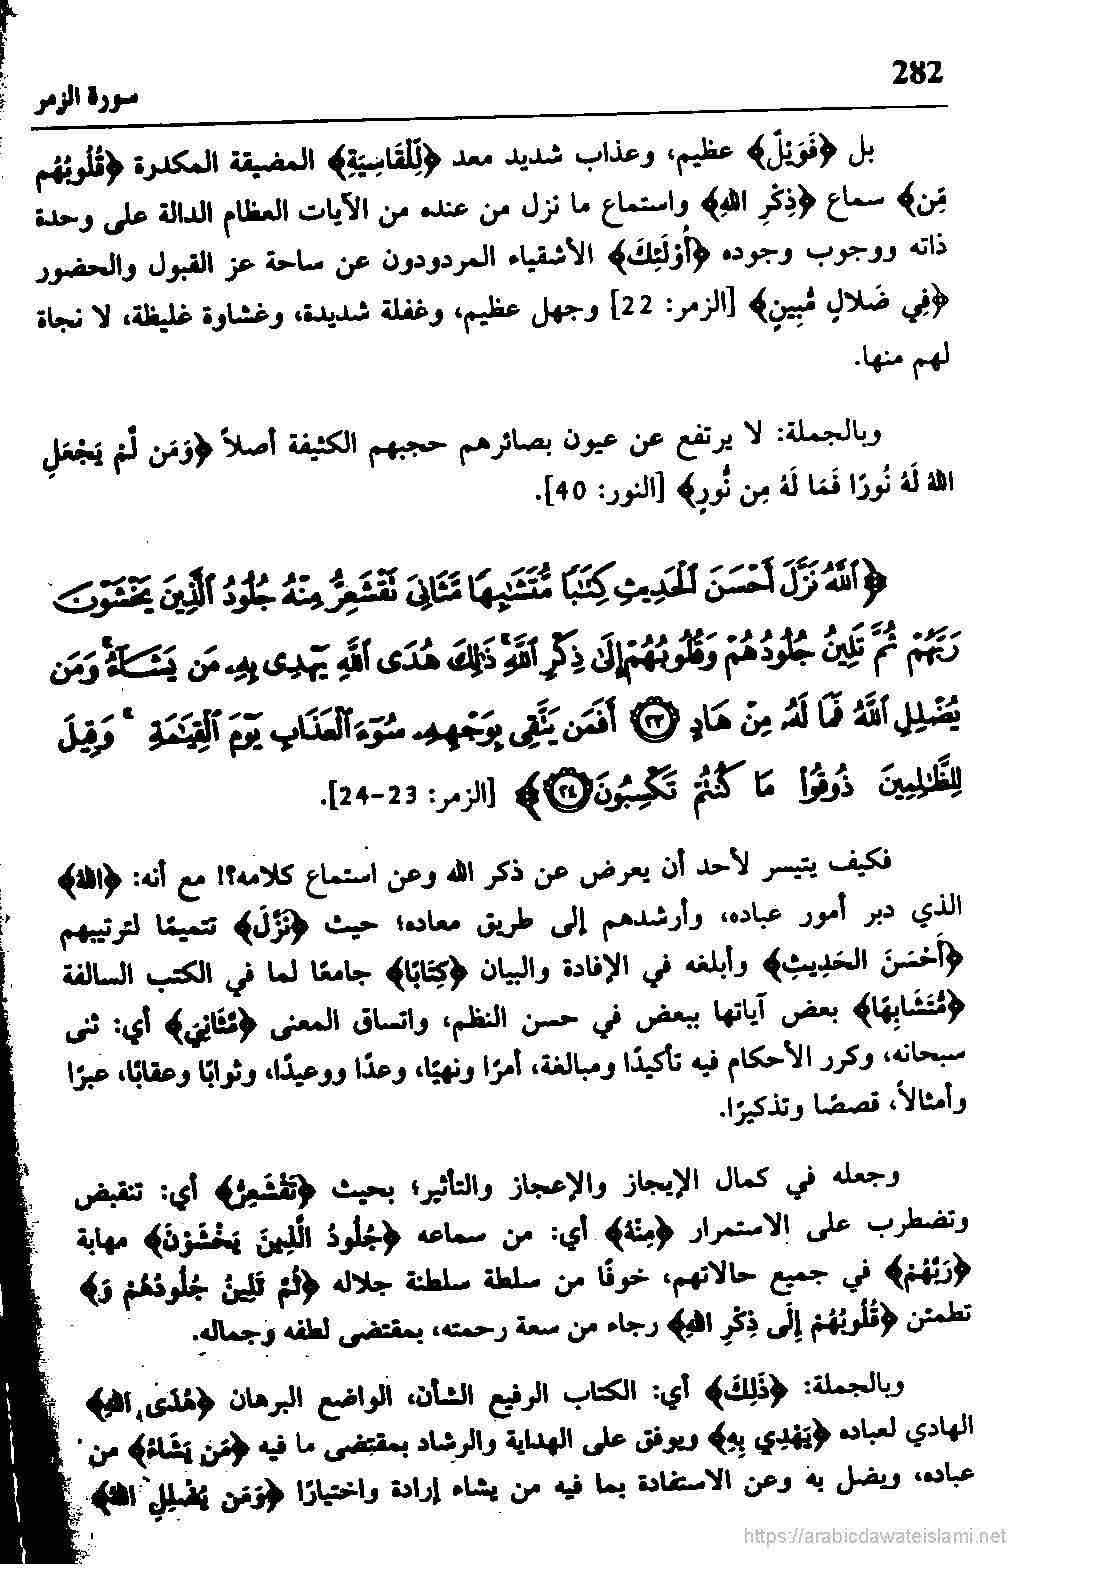 282
سورة الزمر
بل ﴿فَوَيْلٌ﴾ عظيم، وعذاب شديد معد ﴿لِّلْقَاسِيَةِ﴾ المضيقة المكدرة ﴿قُلُوبُهُم
مِّن﴾ سماع ﴿ذِكْرِ اللهِ﴾ واستماع ما نزل من عنده من الآيات العظام الدالة على وحدة
ذاته ووجوب وجوده ﴿أُوْلَئِكَ﴾ الأشقياء المردودون عن ساحة عز القبول والحضور
﴿فِي ضَلالٍ مُّبِينٍ﴾ [الزمر: 22] وجهل عظيم، وغفلة شديدة، وغشاوة غليظة، لا نجاة
لهم منها.
وبالجملة: لا يرتفع عن عيون بصائرهم حجبهم الكثيفة أصلاً ﴿وَمَن لَّمْ يَجْعَلِ
اللهُ لَهُ نُورًا فَمَا لَهُ مِن نُّورٍ﴾ [النور: 40].
﴿ٱللَّهُ نَزَّلَ أَحْسَنَ ٱلْحَدِيثِ كِتَٰبًا مُّتَشَٰبِهًا مَّثَانِىَ تَقْشَعِرُّ مِنْهُ جُلُودُ ٱلَّذِينَ يَخْشَوْنَ
رَبَّهُمْ ثُمَّ تَلِينُ جُلُودُهُمْ وَقُلُوبُهُمْ إِلَىٰ ذِكْرِ ٱللَّهِ ۚ ذَٰلِكَ هُدَى ٱللَّهِ يَهْدِى بِهِۦ مَن يَشَآءُ ۚ وَمَن
يُضْلِلِ ٱللَّهُ فَمَا لَهُۥ مِنْ هَادٍ ۝٢٣ أَفَمَن يَتَّقِى بِوَجْهِهِۦ سُوٓءَ ٱلْعَذَابِ يَوْمَ ٱلْقِيَٰمَةِ ۚ وَقِيلَ
لِلظَّٰلِمِينَ ذُوقُوا۟ مَا كُنتُمْ تَكْسِبُونَ ۝٢٤﴾ [الزمر: 23-24].
فكيف يتيسر لأحد أن يعرض عن ذكر الله وعن استماع كلامه؟! مع أنه: ﴿اللهُ﴾
الذي دبر أمور عباده، وأرشدهم إلى طريق معاده؛ حيث ﴿نَزَّلَ﴾ تتميمًا لترتيبهم
﴿أَحْسَنَ الحَدِيثِ﴾ وأبلغه في الإفادة والبيان ﴿كِتَابًا﴾ جامعًا لما في الكتب السالفة
﴿مُّتَشَابِهًا﴾ بعض آياتها ببعض في حسن النظم، واتساق المعنى ﴿مَّثَانِيَ﴾ أي: ثنى
سبحانه، وكرر الأحكام فيه تأكيدًا ومبالغة، أمرًا ونهيًا، وعدًا ووعيدًا، وثوابًا وعقابًا، عبرًا
وأمثالاً، قصصًا وتذكيرًا.
وجعله في كمال الإيجاز والإعجاز والتأثير؛ بحيث ﴿تَقْشَعِرُّ﴾ أي: تنقبض
وتضطرب على الاستمرار ﴿مِنْهُ﴾ أي: من سماعه ﴿جُلُودُ الَّذِينَ يَخْشَوْنَ﴾ مهابة
﴿رَبَّهُمْ﴾ في جميع حالاتهم، خوفًا من سلطة سلطنة جلاله ﴿ثُمَّ تَلِينُ جُلُودُهُمْ وَ﴾
تطمئن ﴿قُلُوبُهُمْ إِلَى ذِكْرِ اللهِ﴾ رجاء من سعة رحمته، بمقتضى لطفه وجماله.
وبالجملة: ﴿ذَلِكَ﴾ أي: الكتاب الرفيع الشأن، الواضع البرهان ﴿هُدَى اللهِ﴾
الهادي لعباده ﴿يَهْدِي بِهِ﴾ ويوفق على الهداية والرشاد بمقتضى ما فيه ﴿مَن يَشَاءُ﴾ من
عباده، ويضل به وعن الاستفادة بما فيه من يشاء إرادة واختيارًا ﴿وَمَن يُضْلِلِ اللهُ﴾
https://arabicdawateislami.net